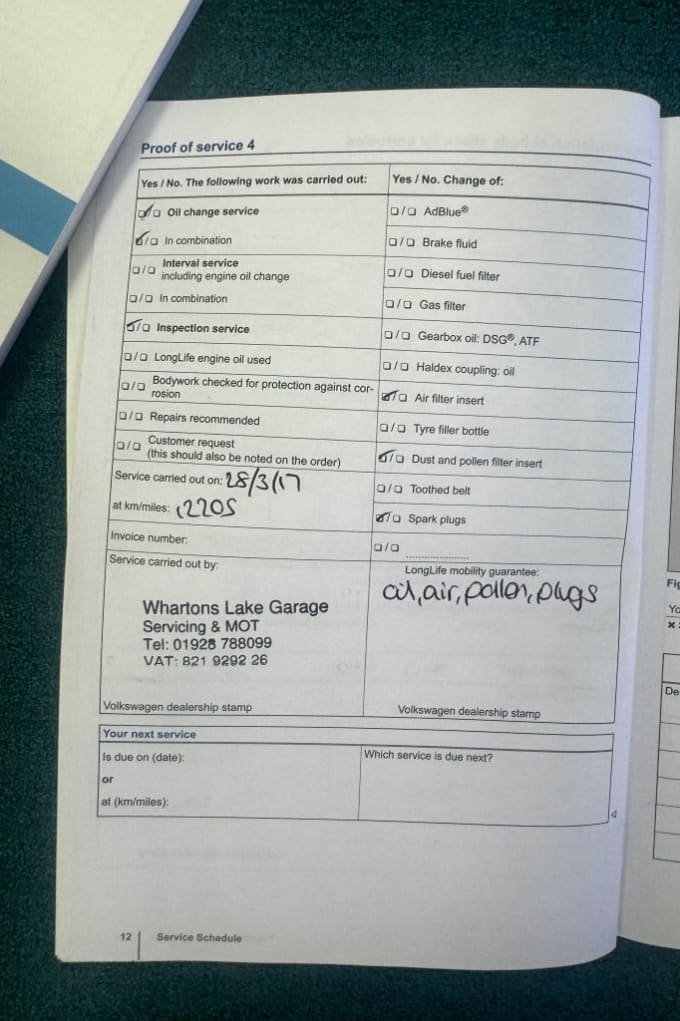 Proof of service 4
Yes / No. The following work was carried out:
☑/☐ Oil change service
☑/☐ In combination
☐/☐ Interval service
including engine oil change
☐/☐ In combination
☑/☐ Inspection service
☐/☐ LongLife engine oil used
☐/☐ Bodywork checked for protection against cor-
rosion
☐/☐ Repairs recommended
☐/☐ Customer request
(this should also be noted on the order)
Service carried out on: 28/3/17
at km/miles: 12205
Invoice number:
Service carried out by:
Whartons Lake Garage
Servicing & MOT
Tel: 01928 788099
VAT: 821 9292 26
Volkswagen dealership stamp
Yes / No. Change of:
☐/☐ AdBlue®
☐/☐ Brake fluid
☐/☐ Diesel fuel filter
☐/☐ Gas filter
☐/☐ Gearbox oil: DSG®, ATF
☐/☐ Haldex coupling: oil
☑/☐ Air filter insert
☐/☐ Tyre filler bottle
☑/☐ Dust and pollen filter insert
☐/☐ Toothed belt
☑/☐ Spark plugs
☐/☐ ....................
LongLife mobility guarantee:
oil, air, pollen, plugs
Volkswagen dealership stamp
Your next service
Is due on (date):
or
at (km/miles):
Which service is due next?
12 Service Schedule
Fig
De